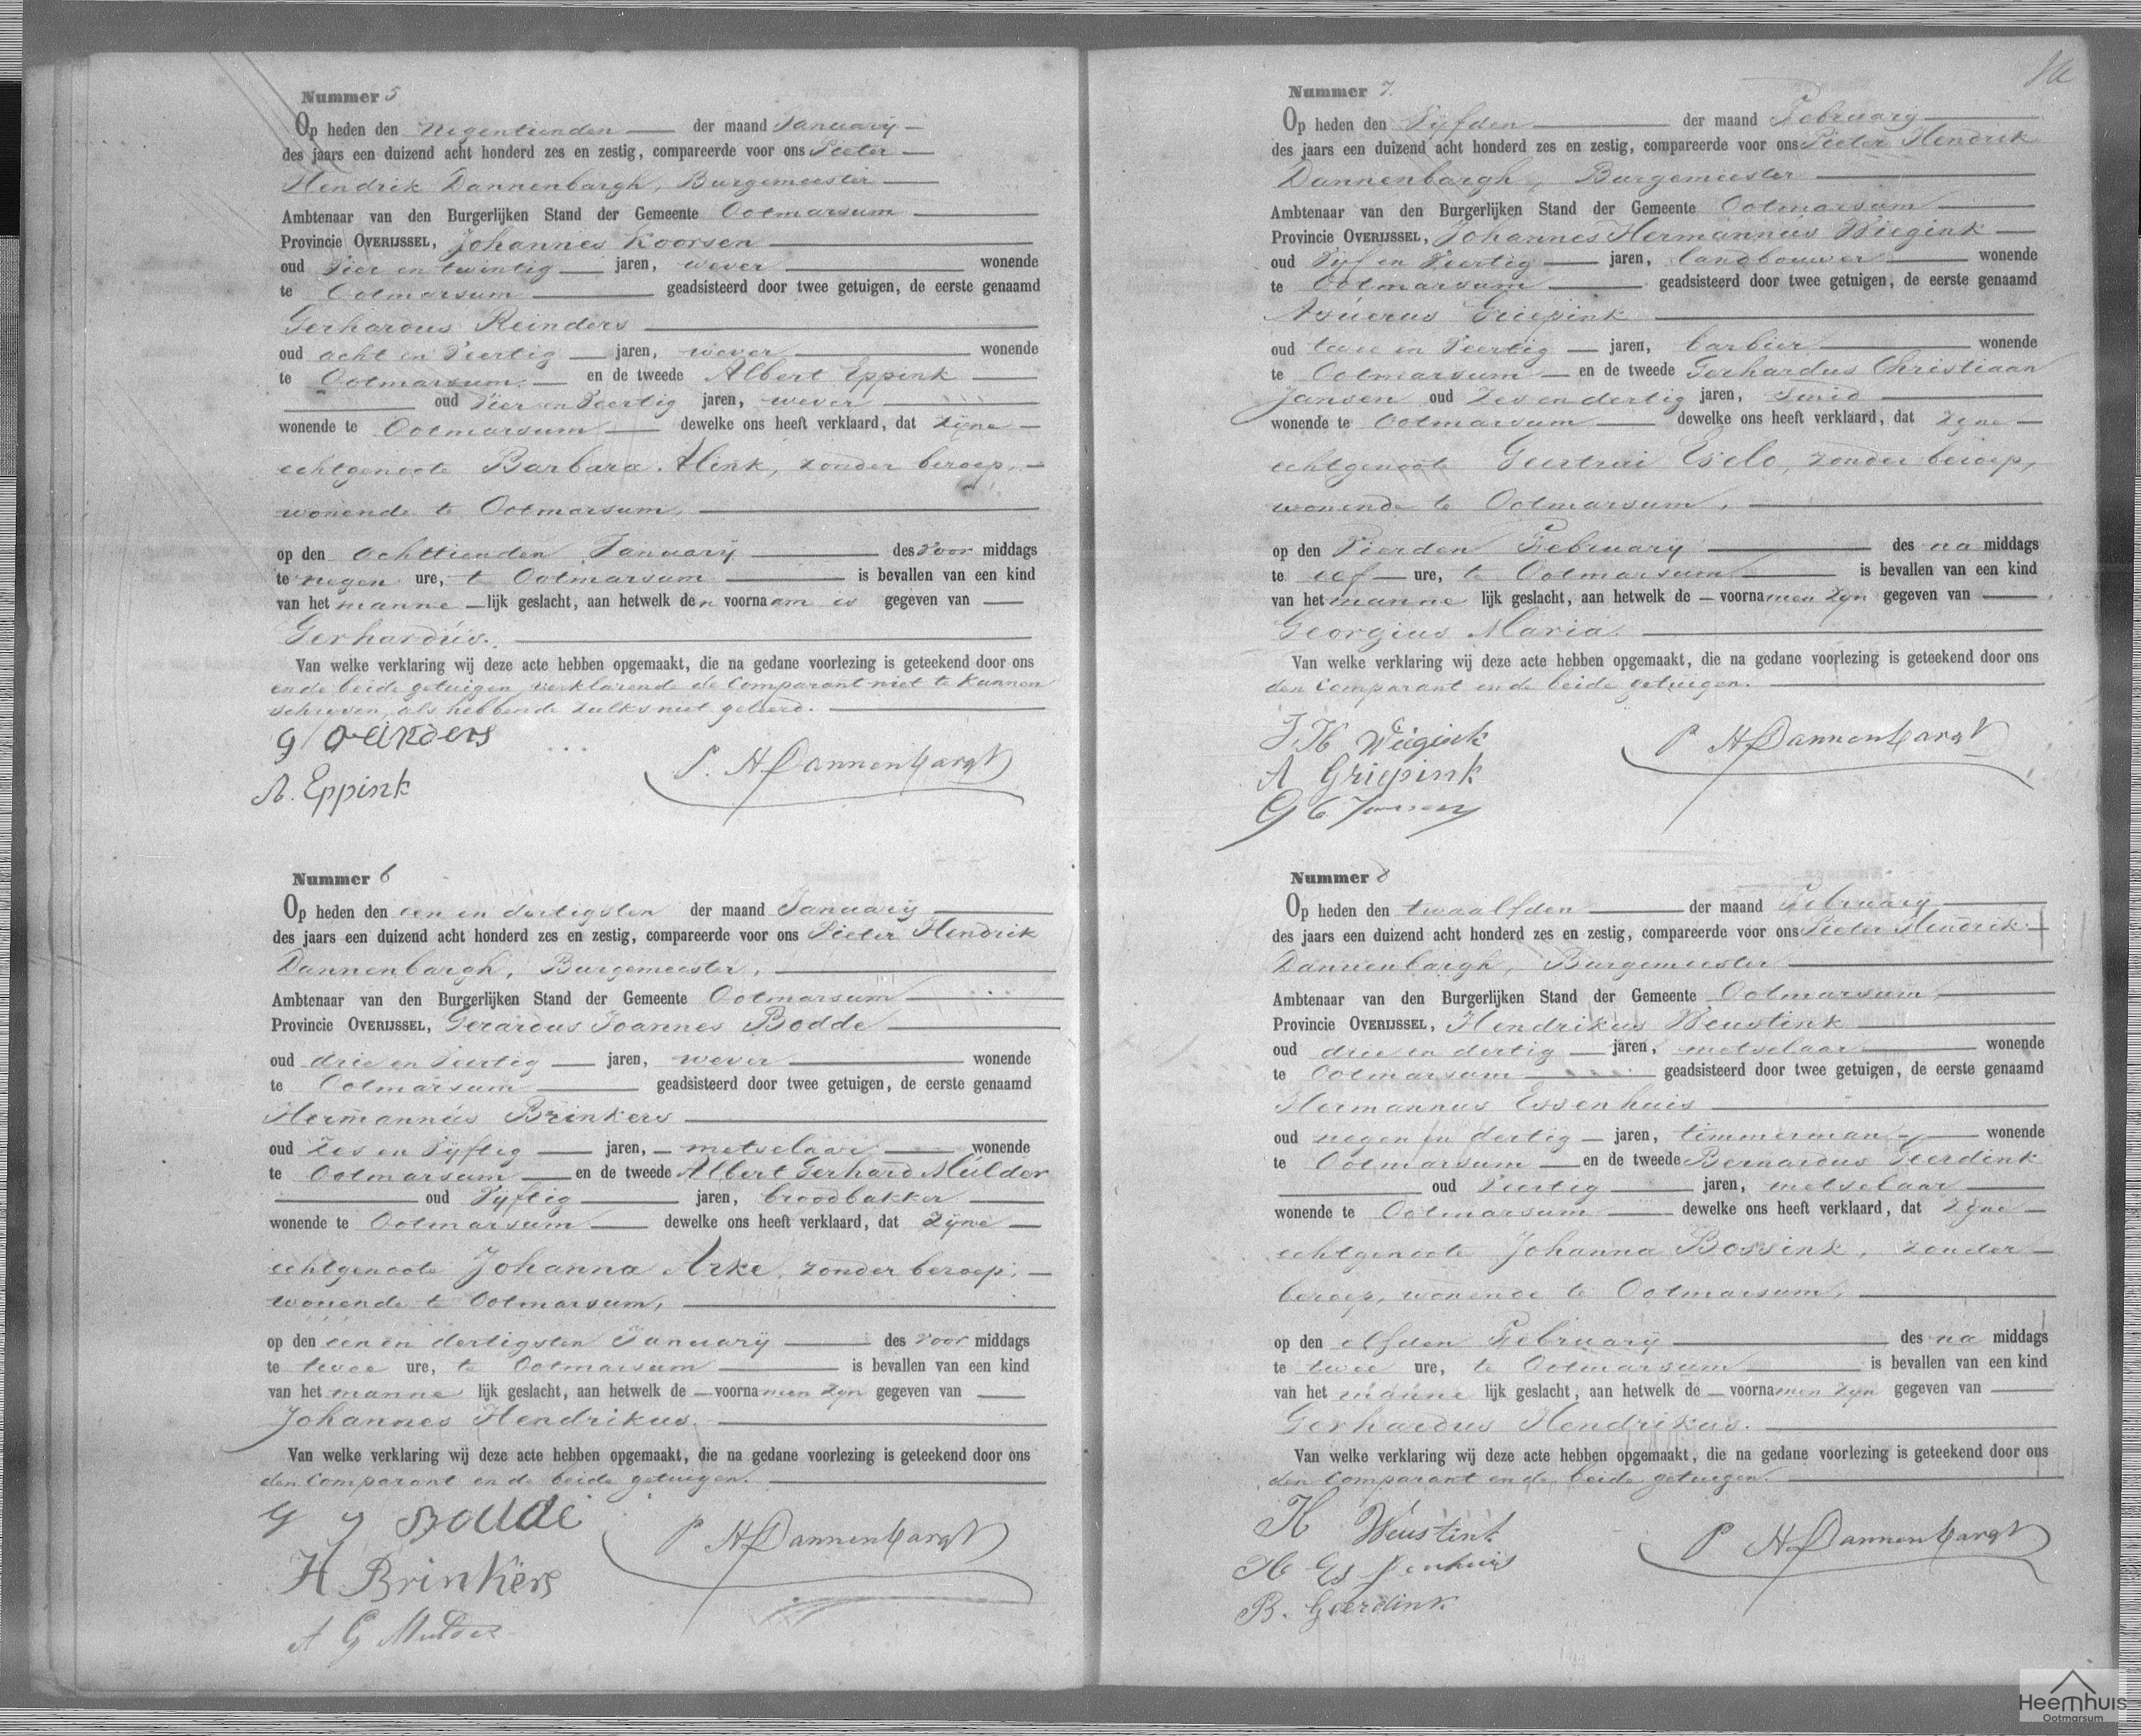 Nummer 5
Op heden den negentienden der maand January
des jaars een duizend acht honderd zes en zestig, compareerde voor ons Pieter
Hendrik Dannenbargh, Burgemeester
Ambtenaar van den Burgerlijken Stand der Gemeente Ootmarsum
Provincie OVERIJSSEL, Johannes Koorsen
oud vier en twintig jaren, wever wonende
te Ootmarsum geadsisteerd door twee getuigen, de eerste genaamd
Gerhardus Reinders
oud acht en veertig jaren, wever wonende
te Ootmarsum. en de tweede Albert Eppink
oud vier en veertig jaren, wever
wonende te Ootmarsum dewelke ons heeft verklaard, dat zijne
echtgenoote Barbara Alink, zonder beroep,
wonende te Ootmarsum,
op den achttienden January des voor middags
te negen ure, te Ootmarsum is bevallen van een kind
van het manne lijk geslacht, aan hetwelk den voornaam is gegeven van
Gerhardus.
Van welke verklaring wij deze acte hebben opgemaakt, die na gedane voorlezing is geteekend door ons
en de beide getuigen, verklarende de Comparant niet te kunnen
schrijven, als hebbende zulks niet geleerd.
G Reinders
A. Eppink
P. H Dannenbargh
Nummer 6
Op heden den een en dertigsten der maand January
des jaars een duizend acht honderd zes en zestig, compareerde voor ons Pieter Hendrik
Dannenbargh, Burgemeester,
Ambtenaar van den Burgerlijken Stand der Gemeente Ootmarsum
Provincie OVERIJSSEL, Gerardus Joannes Bodde
oud drie en veertig jaren, wever wonende
te Ootmarsum geadsisteerd door twee getuigen, de eerste genaamd
Hermannus Brinkers
oud zes en vyftig jaren, metselaar wonende
te Ootmarsum en de tweede Albert Gerhard Mulder
oud vyftig jaren, broodbakker
wonende te Ootmarsum dewelke ons heeft verklaard, dat zijne
echtgenoote Johanna Arke, zonder beroep,
wonende te Ootmarsum,
op den een en dertigsten January des voor middags
te twee ure, te Ootmarsum is bevallen van een kind
van het manne lijk geslacht, aan hetwelk de voornamen zyn gegeven van
Johannes Hendrikus.
Van welke verklaring wij deze acte hebben opgemaakt, die na gedane voorlezing is geteekend door ons
den Comparant en de beide getuigen.
G J Bodde
H Brinkers
A G Mulder
P H Dannenbargh
Nummer 7.
Op heden den vyfden der maand February
des jaars een duizend acht honderd zes en zestig, compareerde voor ons Pieter Hendrik
Dannenbargh, Burgemeester
Ambtenaar van den Burgerlijken Stand der Gemeente Ootmarsum
Provincie OVERIJSSEL, Johannes Hermannus Wiegink
oud vyf en veertig jaren, landbouwer wonende
te Ootmarsum geadsisteerd door twee getuigen, de eerste genaamd
Asuerus Griepink
oud twee en veertig jaren, barbier wonende
te Ootmarsum en de tweede Gerhardus Christiaan
Jansen oud zes en dertig jaren, smid
wonende te Ootmarsum dewelke ons heeft verklaard, dat zyne
echtgenoote Geertrui Eselo, zonder beroep,
wonende te Ootmarsum,
op den vierden February des na middags
te elf ure, te Ootmarsum is bevallen van een kind
van het manne lijk geslacht, aan hetwelk de voornamen zyn gegeven van
Georgius Maria.
Van welke verklaring wij deze acte hebben opgemaakt, die na gedane voorlezing is geteekend door ons
den Comparant en de beide getuigen.
J. H Wiegink
A Griepink
G C Jansen
P H Dannenbargh
Nummer 8
Op heden den twaalfden der maand February
des jaars een duizend acht honderd zes en zestig, compareerde voor ons Pieter Hendrik
Dannenbargh, Burgemeester
Ambtenaar van den Burgerlijken Stand der Gemeente Ootmarsum,
Provincie OVERIJSSEL, Hendrikus Weustink
oud drie en dertig jaren, metselaar wonende
te Ootmarsum geadsisteerd door twee getuigen, de eerste genaamd
Hermannus Essenhuis
oud negen en dertig jaren, timmerman wonende
te Ootmarsum en de tweede Bernardus Geerdink
oud veertig jaren, metselaar
wonende te Ootmarsum dewelke ons heeft verklaard, dat zyne
echtgenoote Johanna Bossink, zonder
beroep, wonende te Ootmarsum,
op den elfden February des na middags
te twee ure, te Ootmarsum is bevallen van een kind
van het manne lijk geslacht, aan hetwelk de voornamen zyn gegeven van
Gerhardus Hendrikus.
Van welke verklaring wij deze acte hebben opgemaakt, die na gedane voorlezing is geteekend door ons
den Comparant en de beide getuigen.
H Weustink
H Essenhuis
B. Geerdink
P H Dannenbargh
Heemhuis
Ootmarsum